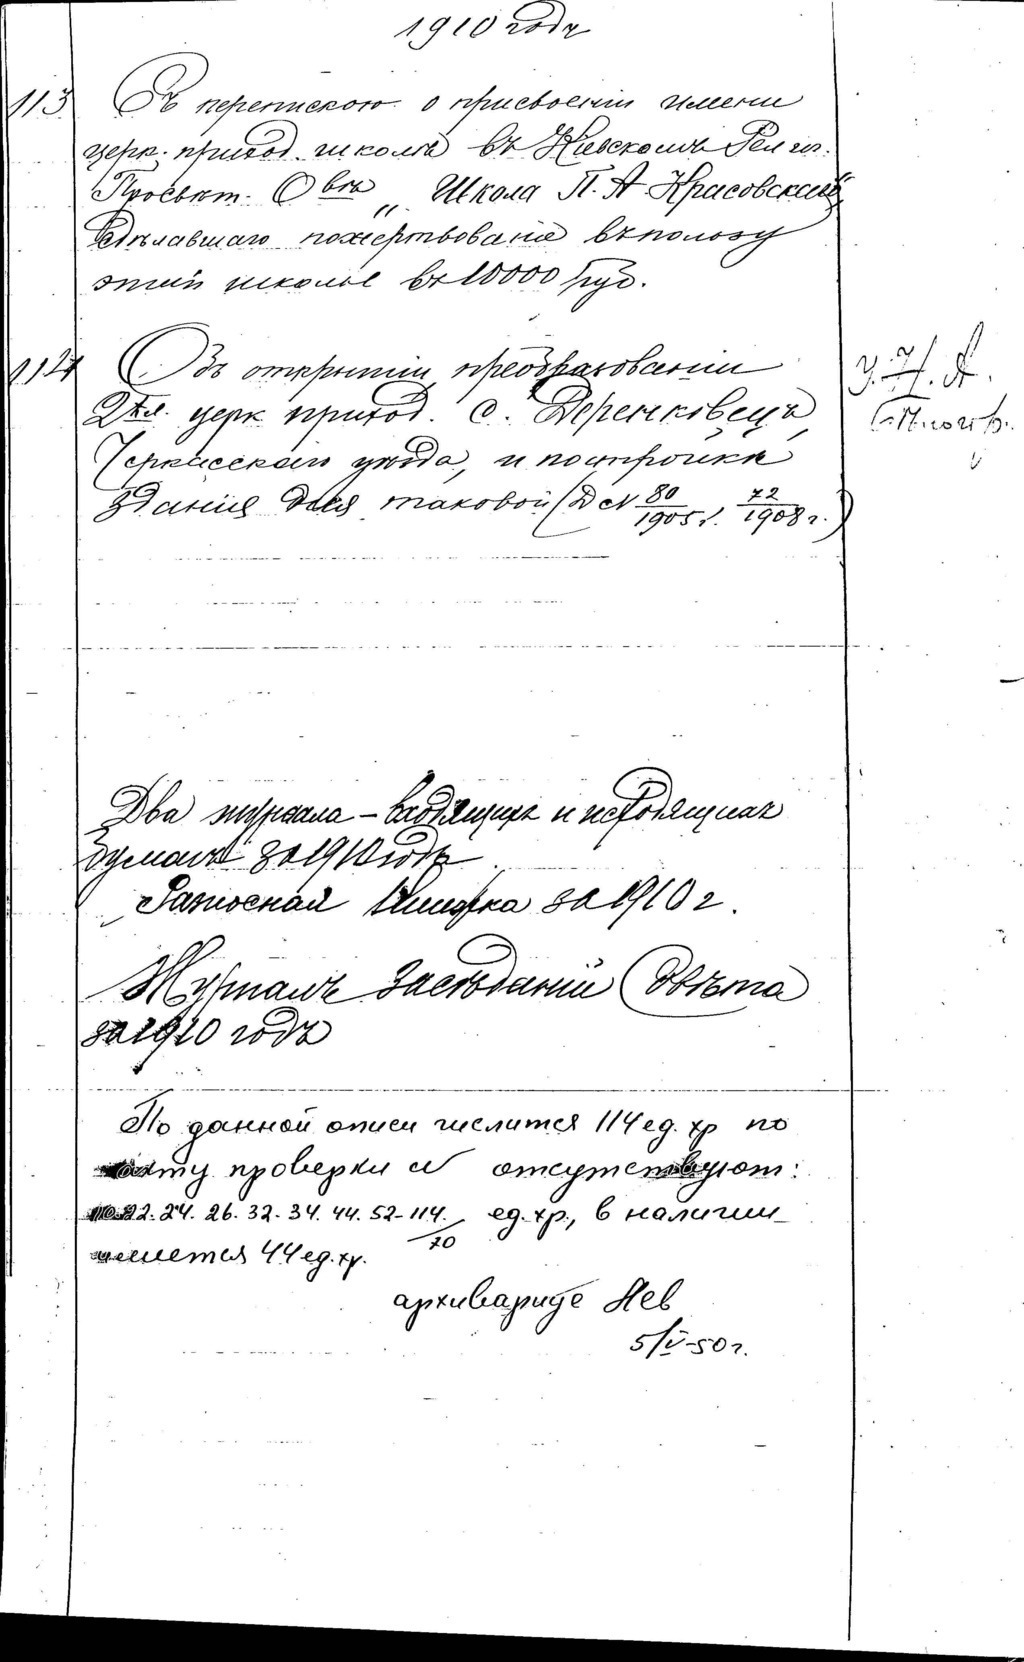 1910 годъ
113 Съ перепискою о присвоеніи имени
церк. приход. школѣ въ Кіевскомъ Религ.
Просвѣт. О вѣ „Школа П. А Красовскаго“
сдѣлавшаго пожертвованіе въ пользу
этой школы въ 10000 руб.
114 Объ открытіи, преобразованіи
2 кл. церк приход. с. Деренковецъ
Черкасскаго уѣзда, и постройки
зданія для таковой (Д № 80/1905 г. 72/1908 г.)
У. Н. А.
Два журнала – входящихъ и исходящихъ
бумагъ за 1910 годъ
Разносная книжка за 1910 г.
Журналъ Засѣданій Совѣта
за 1910 годъ
По данной описи числится 114 ед. хр по
акту проверки № отсутствуют:
22. 24. 26. 32. 34. 44. 52-114. /70 ед. хр., в наличии
имеется 44 ед. хр.
архивариус Лев
5/V-50 г.